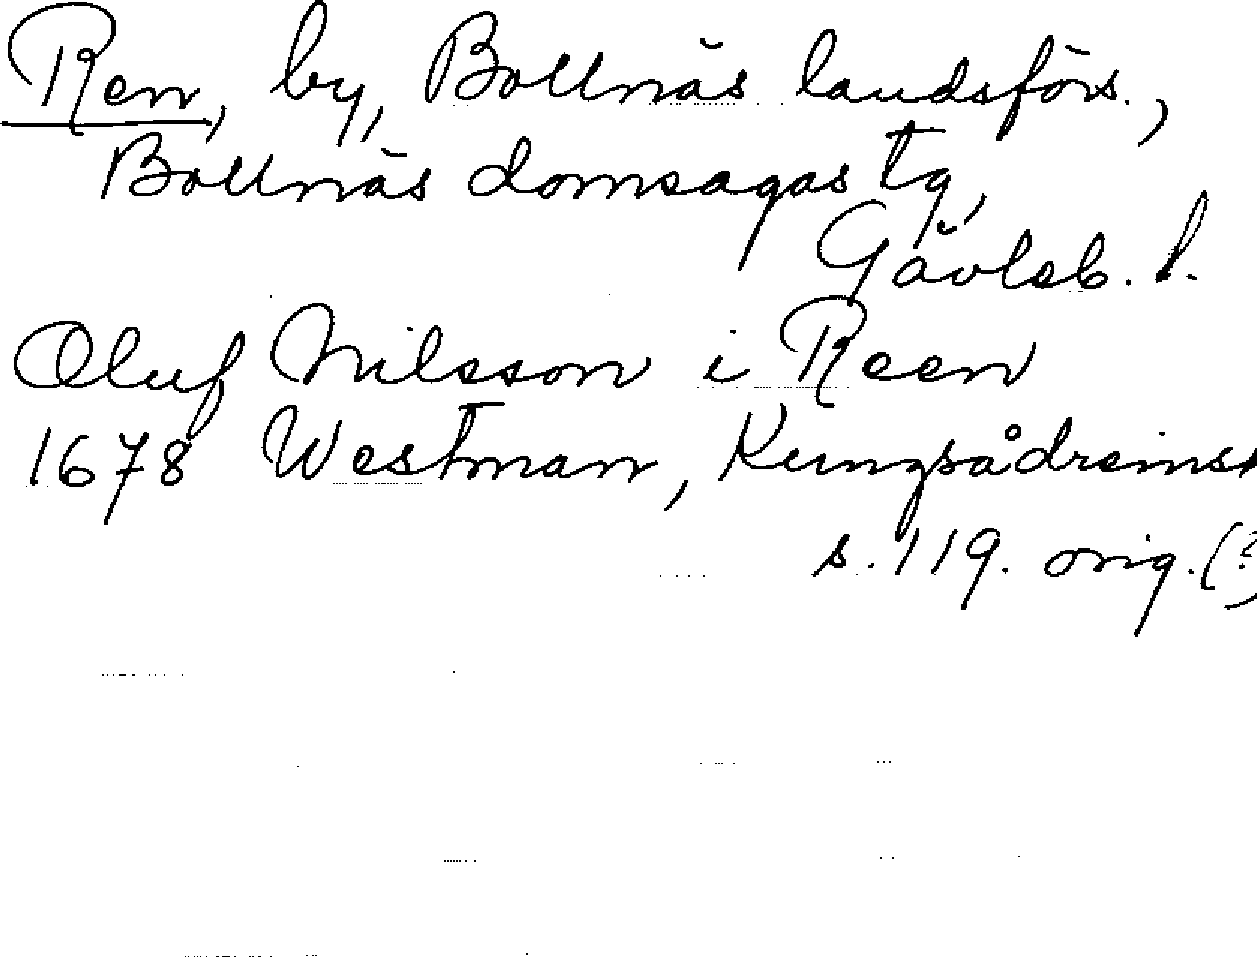 Ren, by, Bollnäs landsförs.,
Bollnäs domsagas tg,
Gävleb. l.
Oluf Nilsson i Reen
1678 Westman, Kungsådreinst
s. 119. orig. (?)